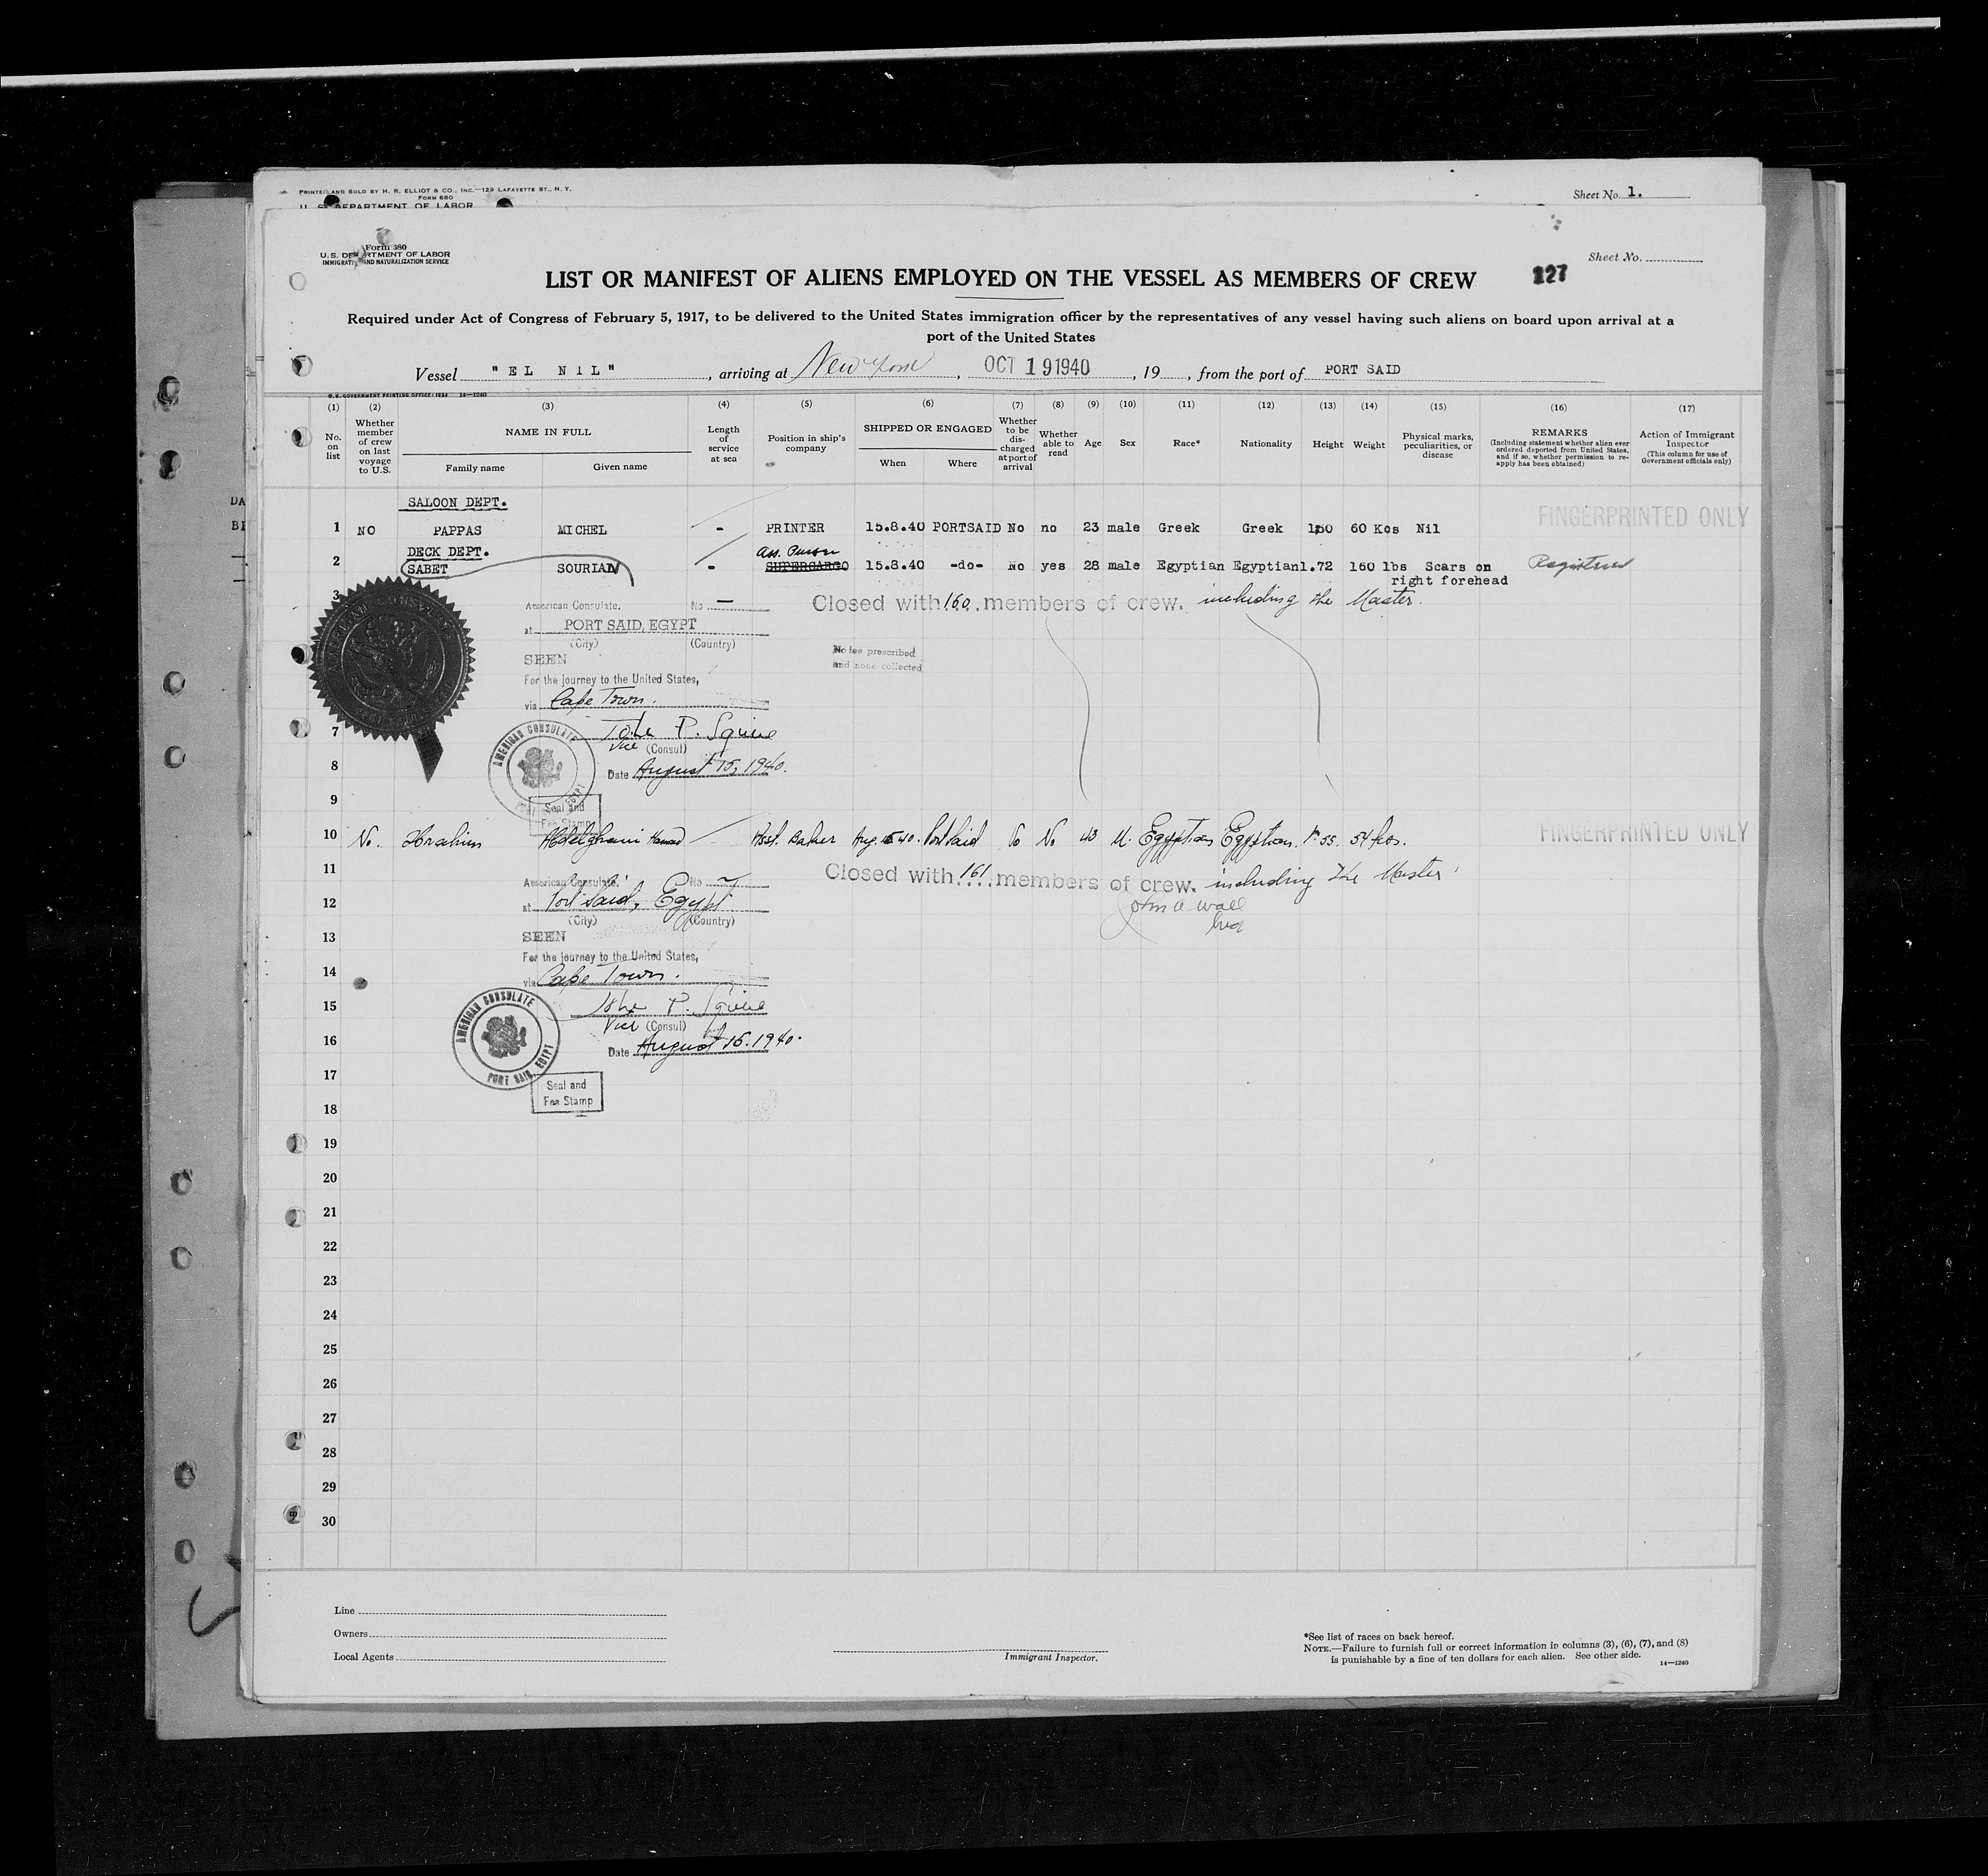 PRINTED AND SOLD BY H. R. ELLIOT & CO., INC.—129 LAFAYETTE ST., N. Y.
FORM 680
U. S. DEPARTMENT OF LABOR
Sheet No. 1.
Form 680
U.S. DEPARTMENT OF LABOR
IMMIGRATION AND NATURALIZATION SERVICE
Sheet No.
127
LIST OR MANIFEST OF ALIENS EMPLOYED ON THE VESSEL AS MEMBERS OF CREW
Required under Act of Congress of February 5, 1917, to be delivered to the United States immigration officer by the representatives of any vessel having such aliens on board upon arrival at a
port of the United States
Vessel "EL NIL", arriving at New York, OCT 19 1940, 19, from the port of PORT SAID
U.S. GOVERNMENT PRINTING OFFICE: 1934 14—1240
(1) (2) (3) (4) (5) (6) (7) (8) (9) (10) (11) (12) (13) (14) (15) (16) (17)
No. on list
Whether member of crew on last voyage to U.S.
NAME IN FULL
Family name Given name
Length of service at sea
Position in ship's company
SHIPPED OR ENGAGED
When Where
Whether to be discharged at port of arrival
Whether able to read
Age
Sex
Race*
Nationality
Height
Weight
Physical marks, peculiarities, or disease
REMARKS
(Including statement whether alien ever ordered deported from United States, and if so, whether permission to reapply has been obtained)
Action of Immigrant Inspector
(This column for use of Government officials only)
SALOON DEPT.
1 NO PAPPAS MICHEL - PRINTER 15.8.40 PORTSAID No no 23 male Greek Greek 1,50 60 Kos Nil FINGERPRINTED ONLY
DECK DEPT.
Ass. Purser
2 SABET SOURIAN - SUPERCARGO 15.8.40 -do- No yes 28 male Egyptian Egyptian 1.72 160 lbs Scars on Registered
right forehead
3 American Consulate, No — Closed with 160 members of crew. including the Master.
at PORT SAID, EGYPT
(City) (Country)
No fee prescribed
and none collected
SEEN
For the journey to the United States,
via Cape Town.
7 John P. Squire
Vice (Consul)
AMERICAN CONSULATE
PORT SAID, EGYPT
8 Date August 15, 1940.
9 Seal and
Fee Stamp
10 No. Ibrahim Abdelghani Hamad Asst. Baker Aug. 15 40. Port Said No No 43 M. Egyptian Egyptian. 1m 55. 54 kos. FINGERPRINTED ONLY
11 American Consulate, No Closed with 161 members of crew. including the Master
12 at Port Said, Egypt
(City) (Country)
John A Wall
13 SEEN
For the journey to the United States,
14 via Cape Town.
15 John P. Squire
Vice (Consul)
AMERICAN CONSULATE
PORT SAID, EGYPT
16 Date August 15. 1940.
17 Seal and
Fee Stamp
18
19
20
21
22
23
24
25
26
27
28
29
30
Line
Owners
Local Agents
Immigrant Inspector.
*See list of races on back hereof.
NOTE.—Failure to furnish full or correct information in columns (3), (6), (7), and (8)
is punishable by a fine of ten dollars for each alien. See other side.
14—1240